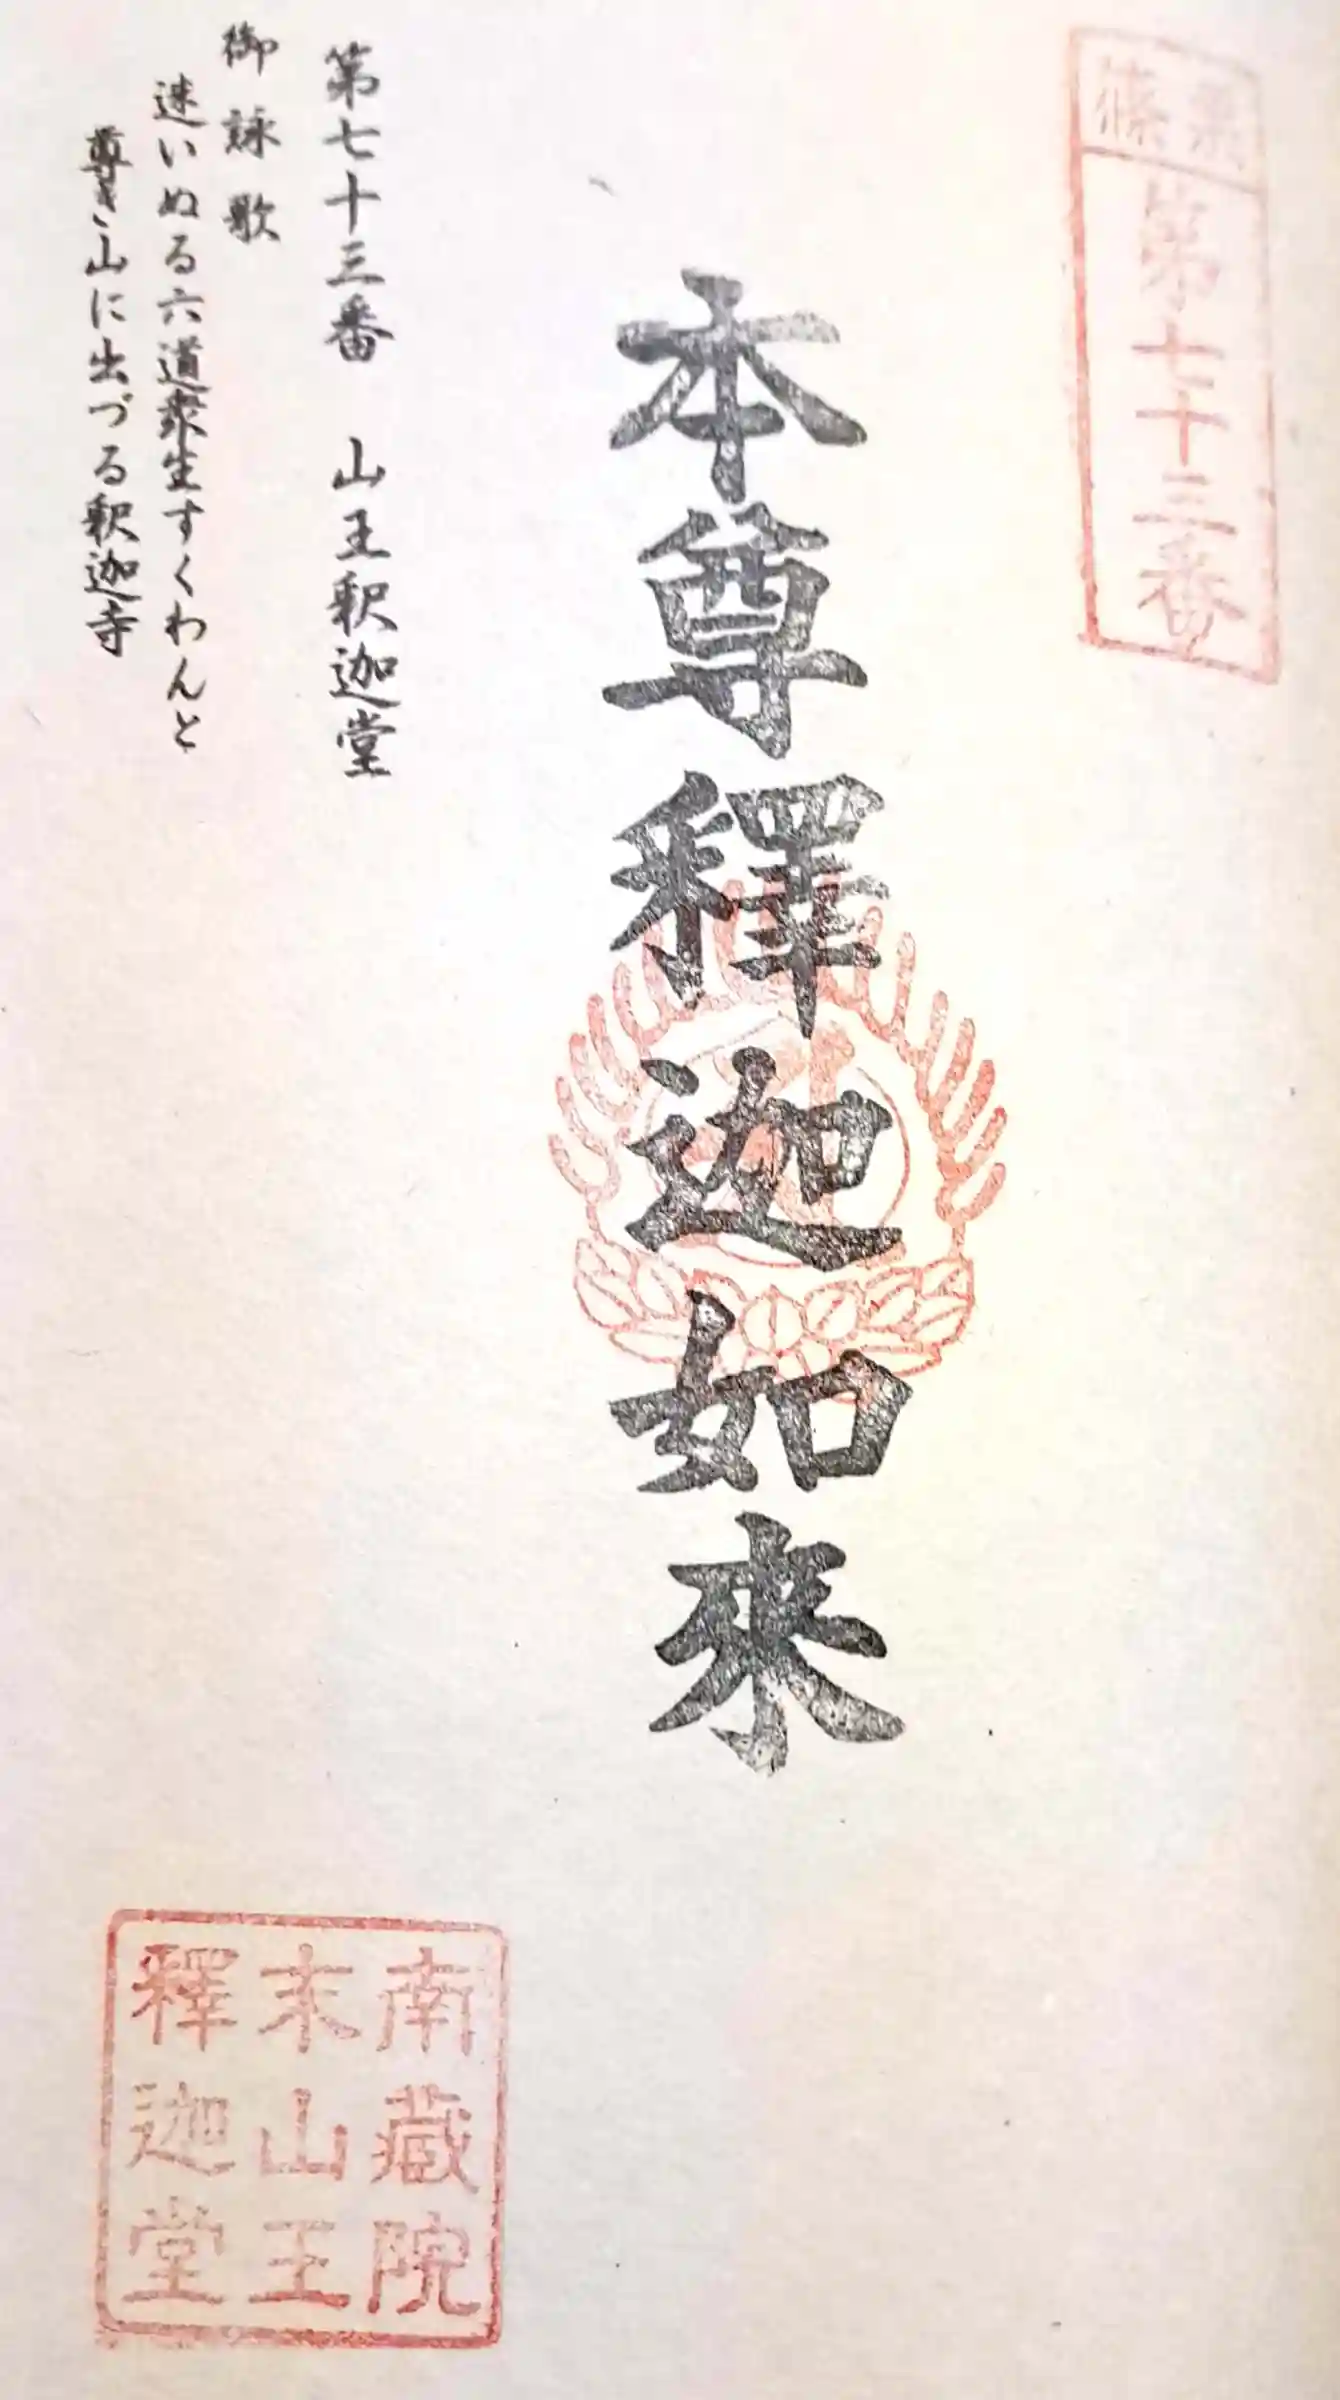 篠栗
第七十三番
本尊釋迦如来
第七十三番 山王釈迦堂
御詠歌
迷いぬる六道衆生すくわんと
尊き山に出づる釈迦寺
南藏院
末山王
釋迦堂